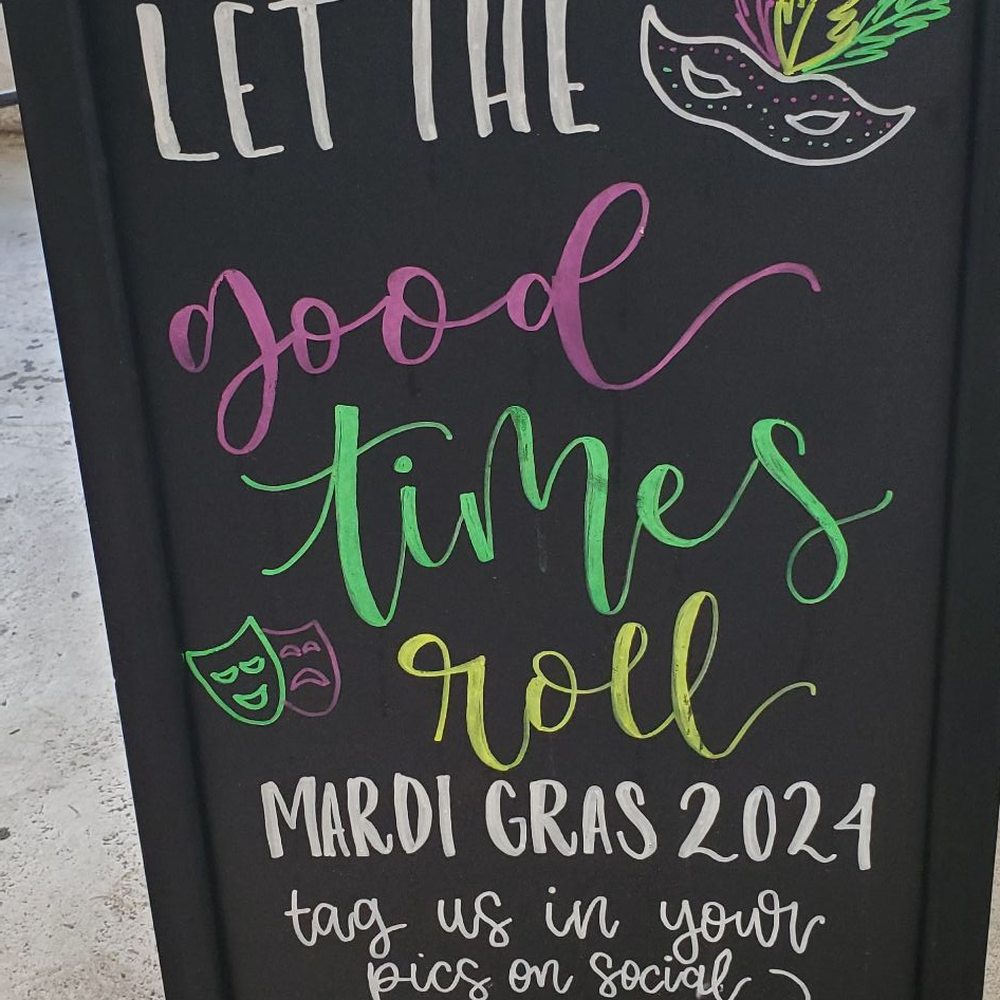 LET THE
good
times
roll
MARDI GRAS 2024
tag us in your
pics on social